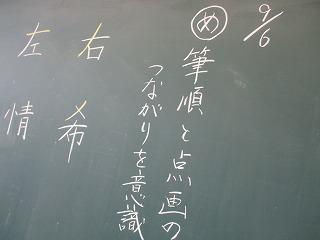 9/6
め
筆順と点画の
つながりを意識
右 左
希 情